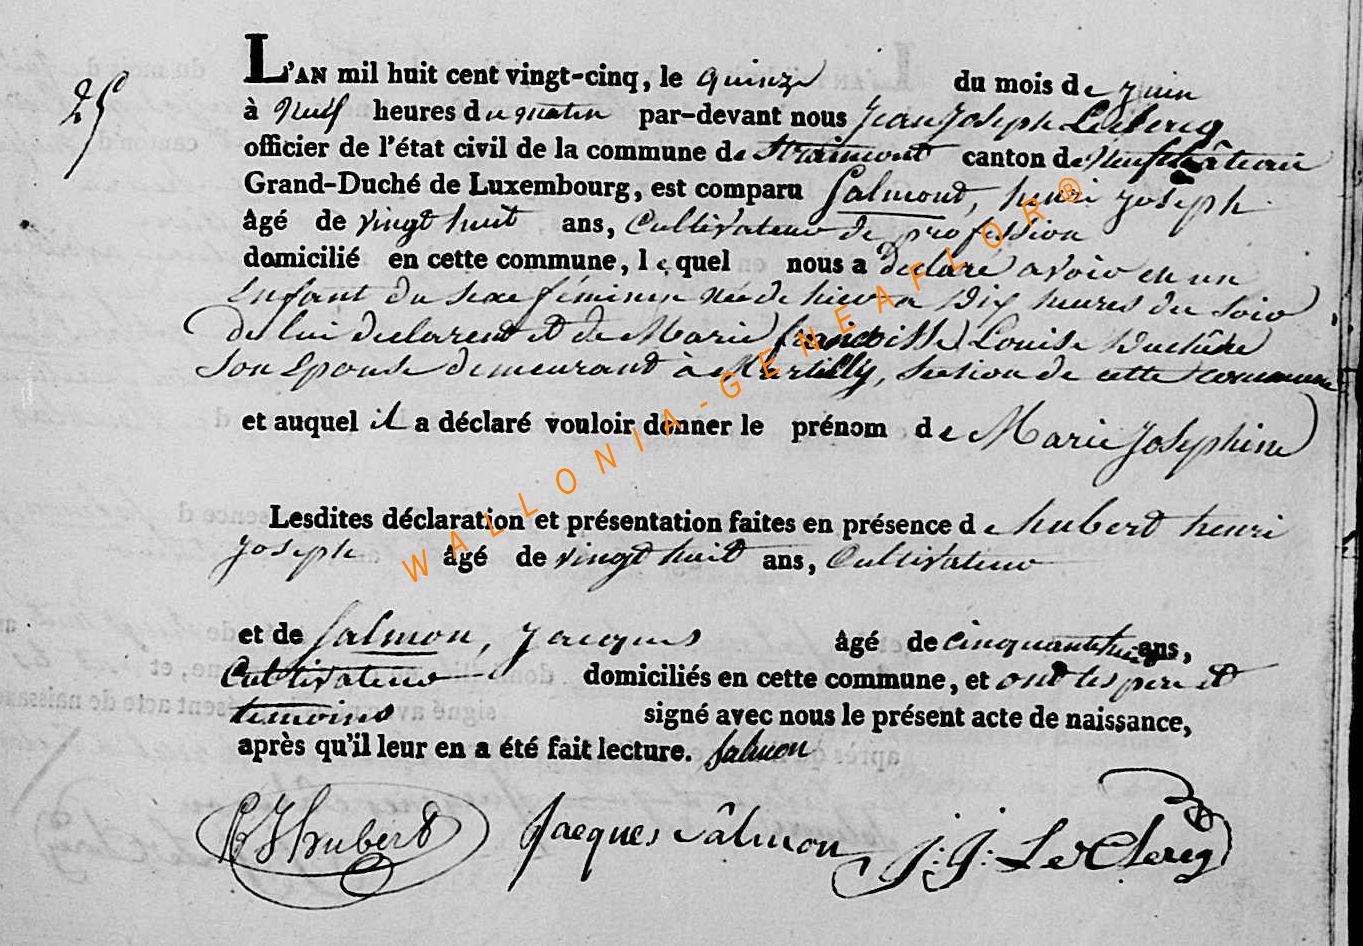 25
L'AN mil huit cent vingt-cinq, le quinze du mois de juin
à neuf heures du matin par-devant nous Jean Joseph Leclercq
officier de l'état civil de la commune de Straimont canton de Neufchâteau
Grand-Duché de Luxembourg, est comparu Salmont, henri joseph
âgé de vingt huit ans, Cultivateur de profession
domicilié en cette commune, lequel nous a déclaré avoir eu un
Enfant du sexe féminin née de hier a Dix heures du soir
de lui declarant et de Marie Louise
Son Epouse demeurant à Martilly, section de cette commune
et auquel il a déclaré vouloir donner le prénom de Marie Josephine
Lesdites déclaration et présentation faites en présence de hubert henri
joseph âgé de vingt huit ans, Cultivateur
et de Salmon, jacques âgé de ans,
Cultivateur domiciliés en cette commune, et ont les pere et
temoins signé avec nous le présent acte de naissance,
après qu'il leur en a été fait lecture. Salmon
hubert Jacques Sâlmon J: J: Le Clercq
WALLONIA-GENEAFLOR®